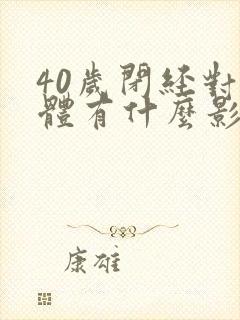 40歲閉経對
體有什麼影
康雄